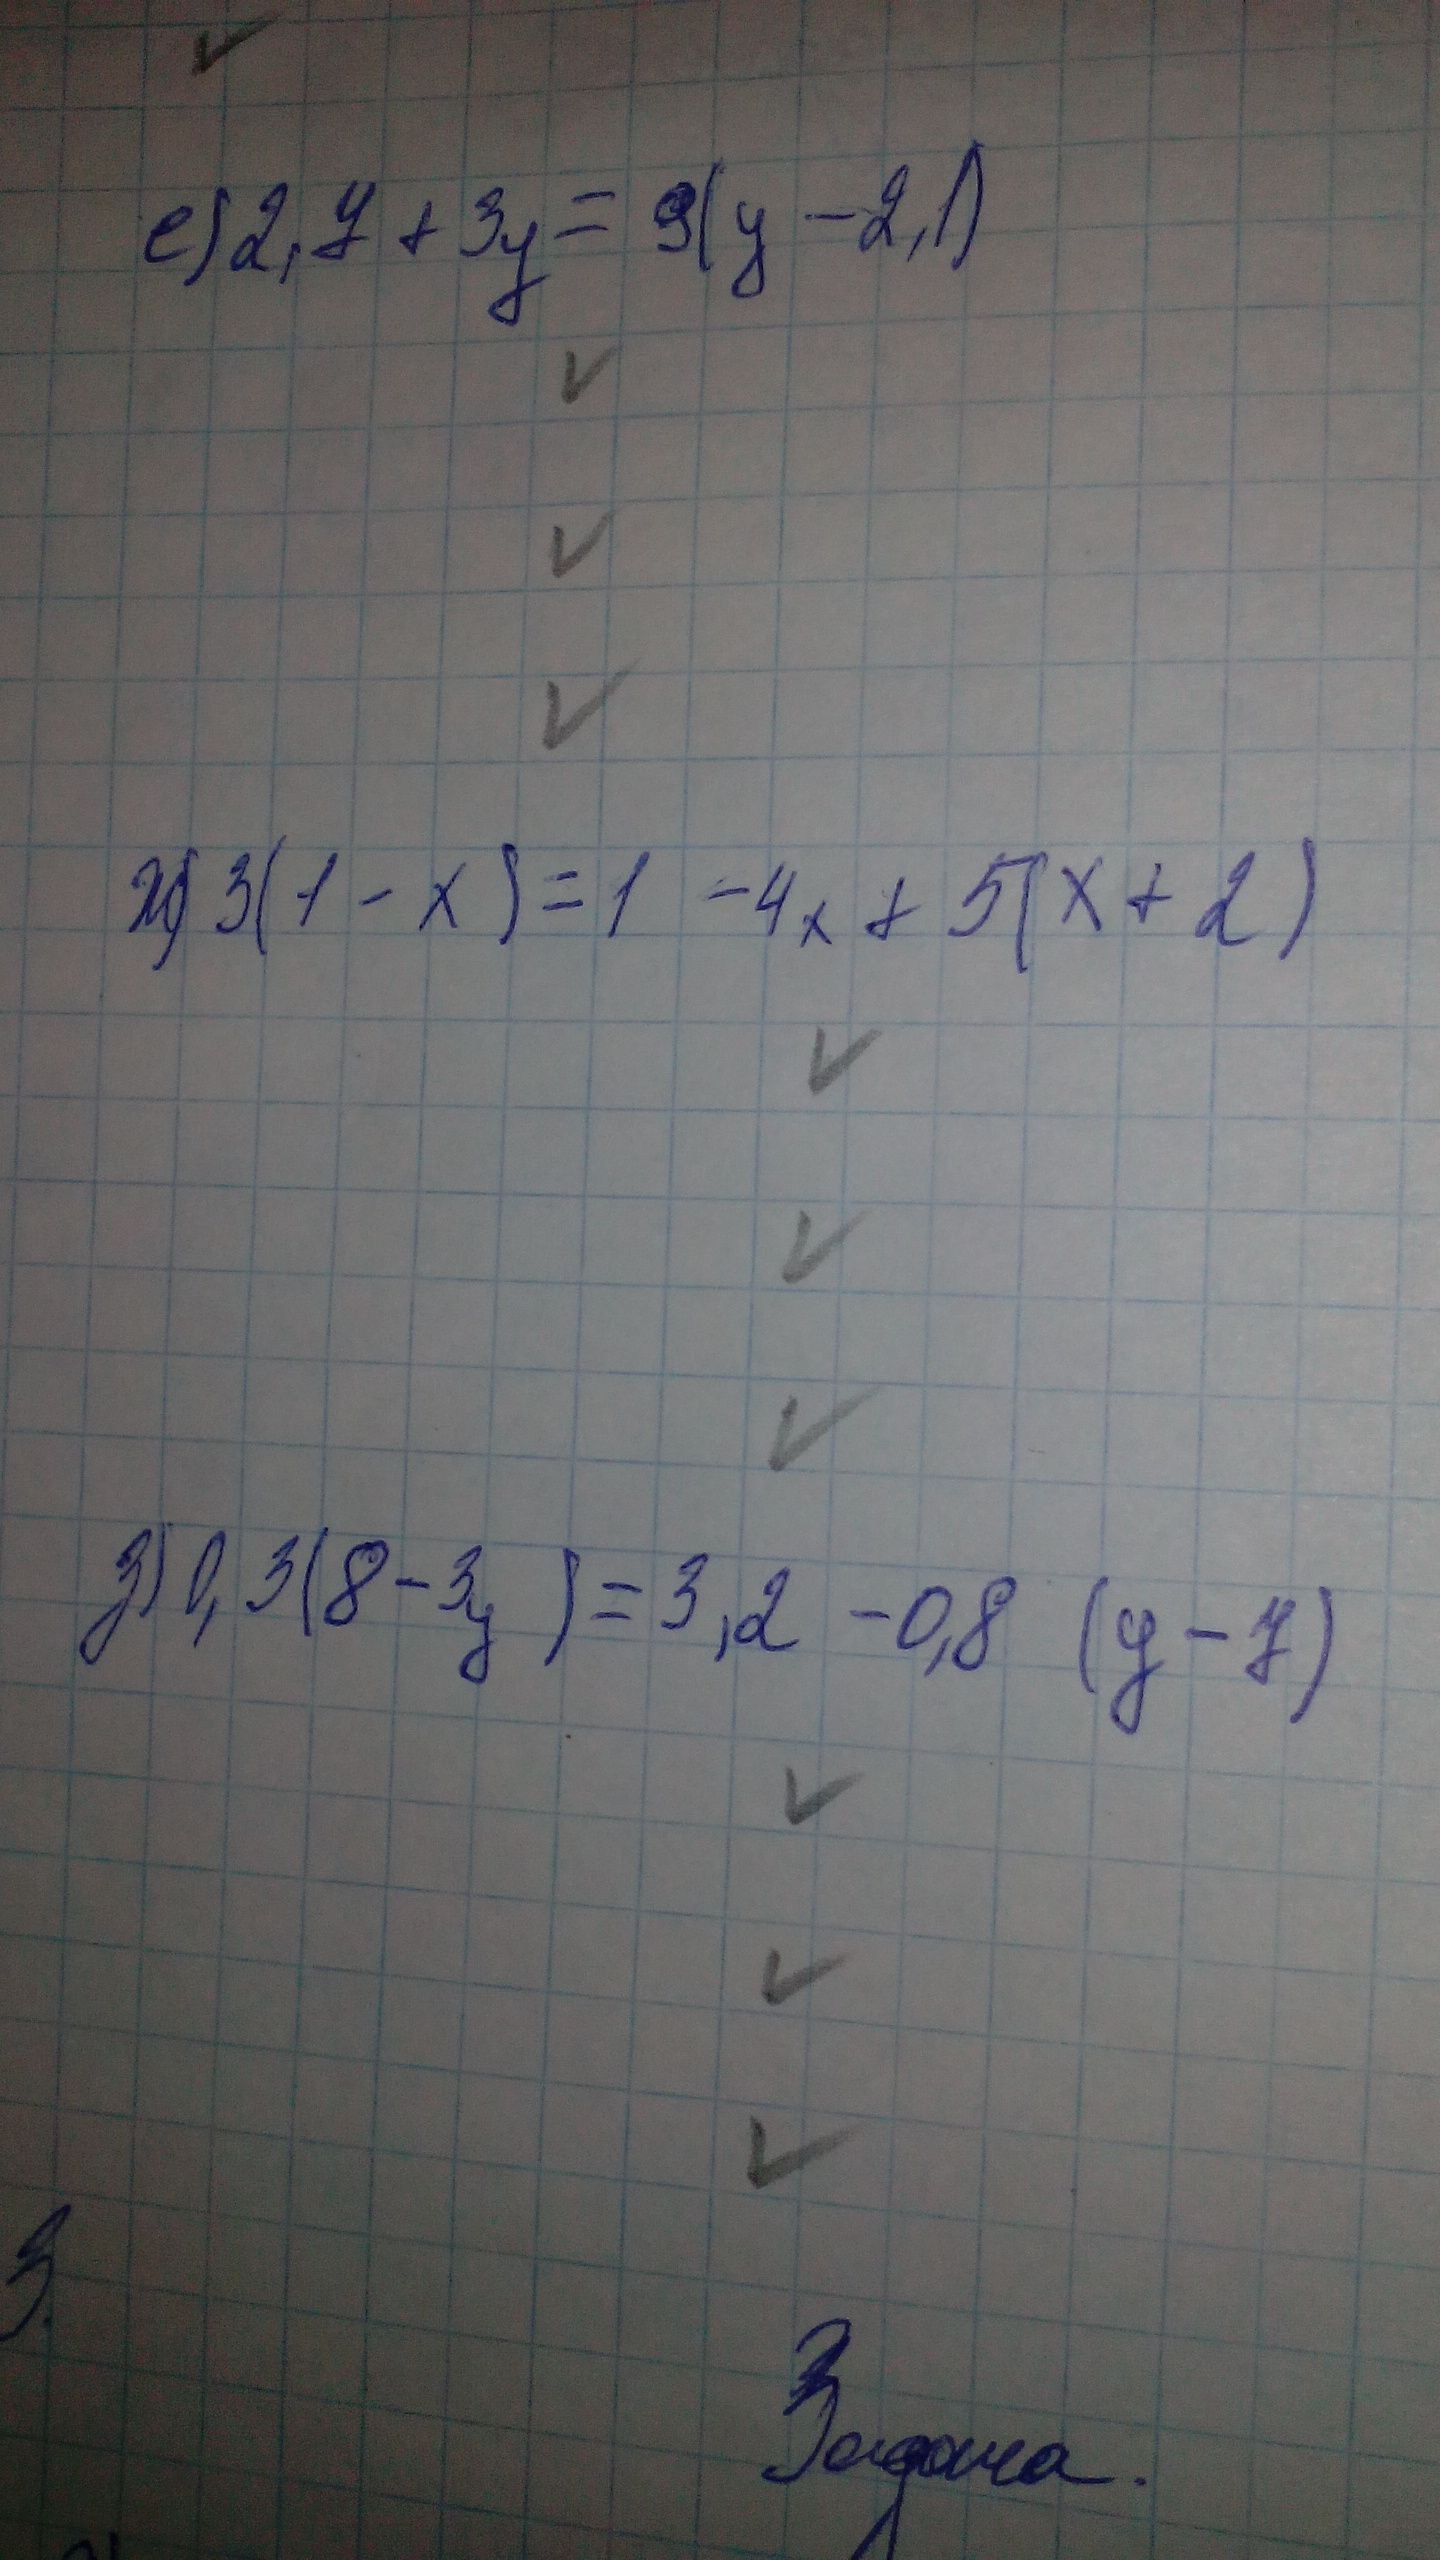 е) 2,7 + 3y = 9(y - 2,1)
ж) 3(1 - x) = 1 - 4x + 5(x + 2)
з) 0,3(8 - 3y) = 3,2 - 0,8 (y - 7)
3.
Задача.